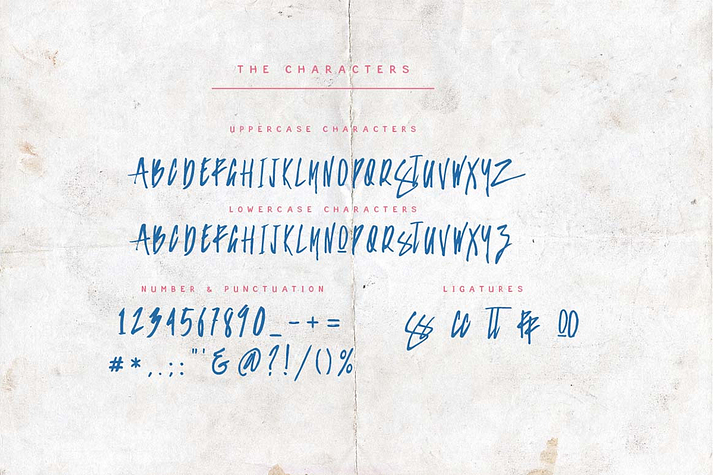 THE CHARACTERS
UPPERCASE CHARACTERS
ABCDEFGHIJKLMNOPQRSTUVWXYZ
LOWERCASE CHARACTERS
ABCDEFGHIJKLMNOPQRSTUVWXYZ
NUMBER & PUNCTUATION
LIGATURES
1234567890_-+=
SS CC TT FF OO
#*,.;:"'&@?!/()%